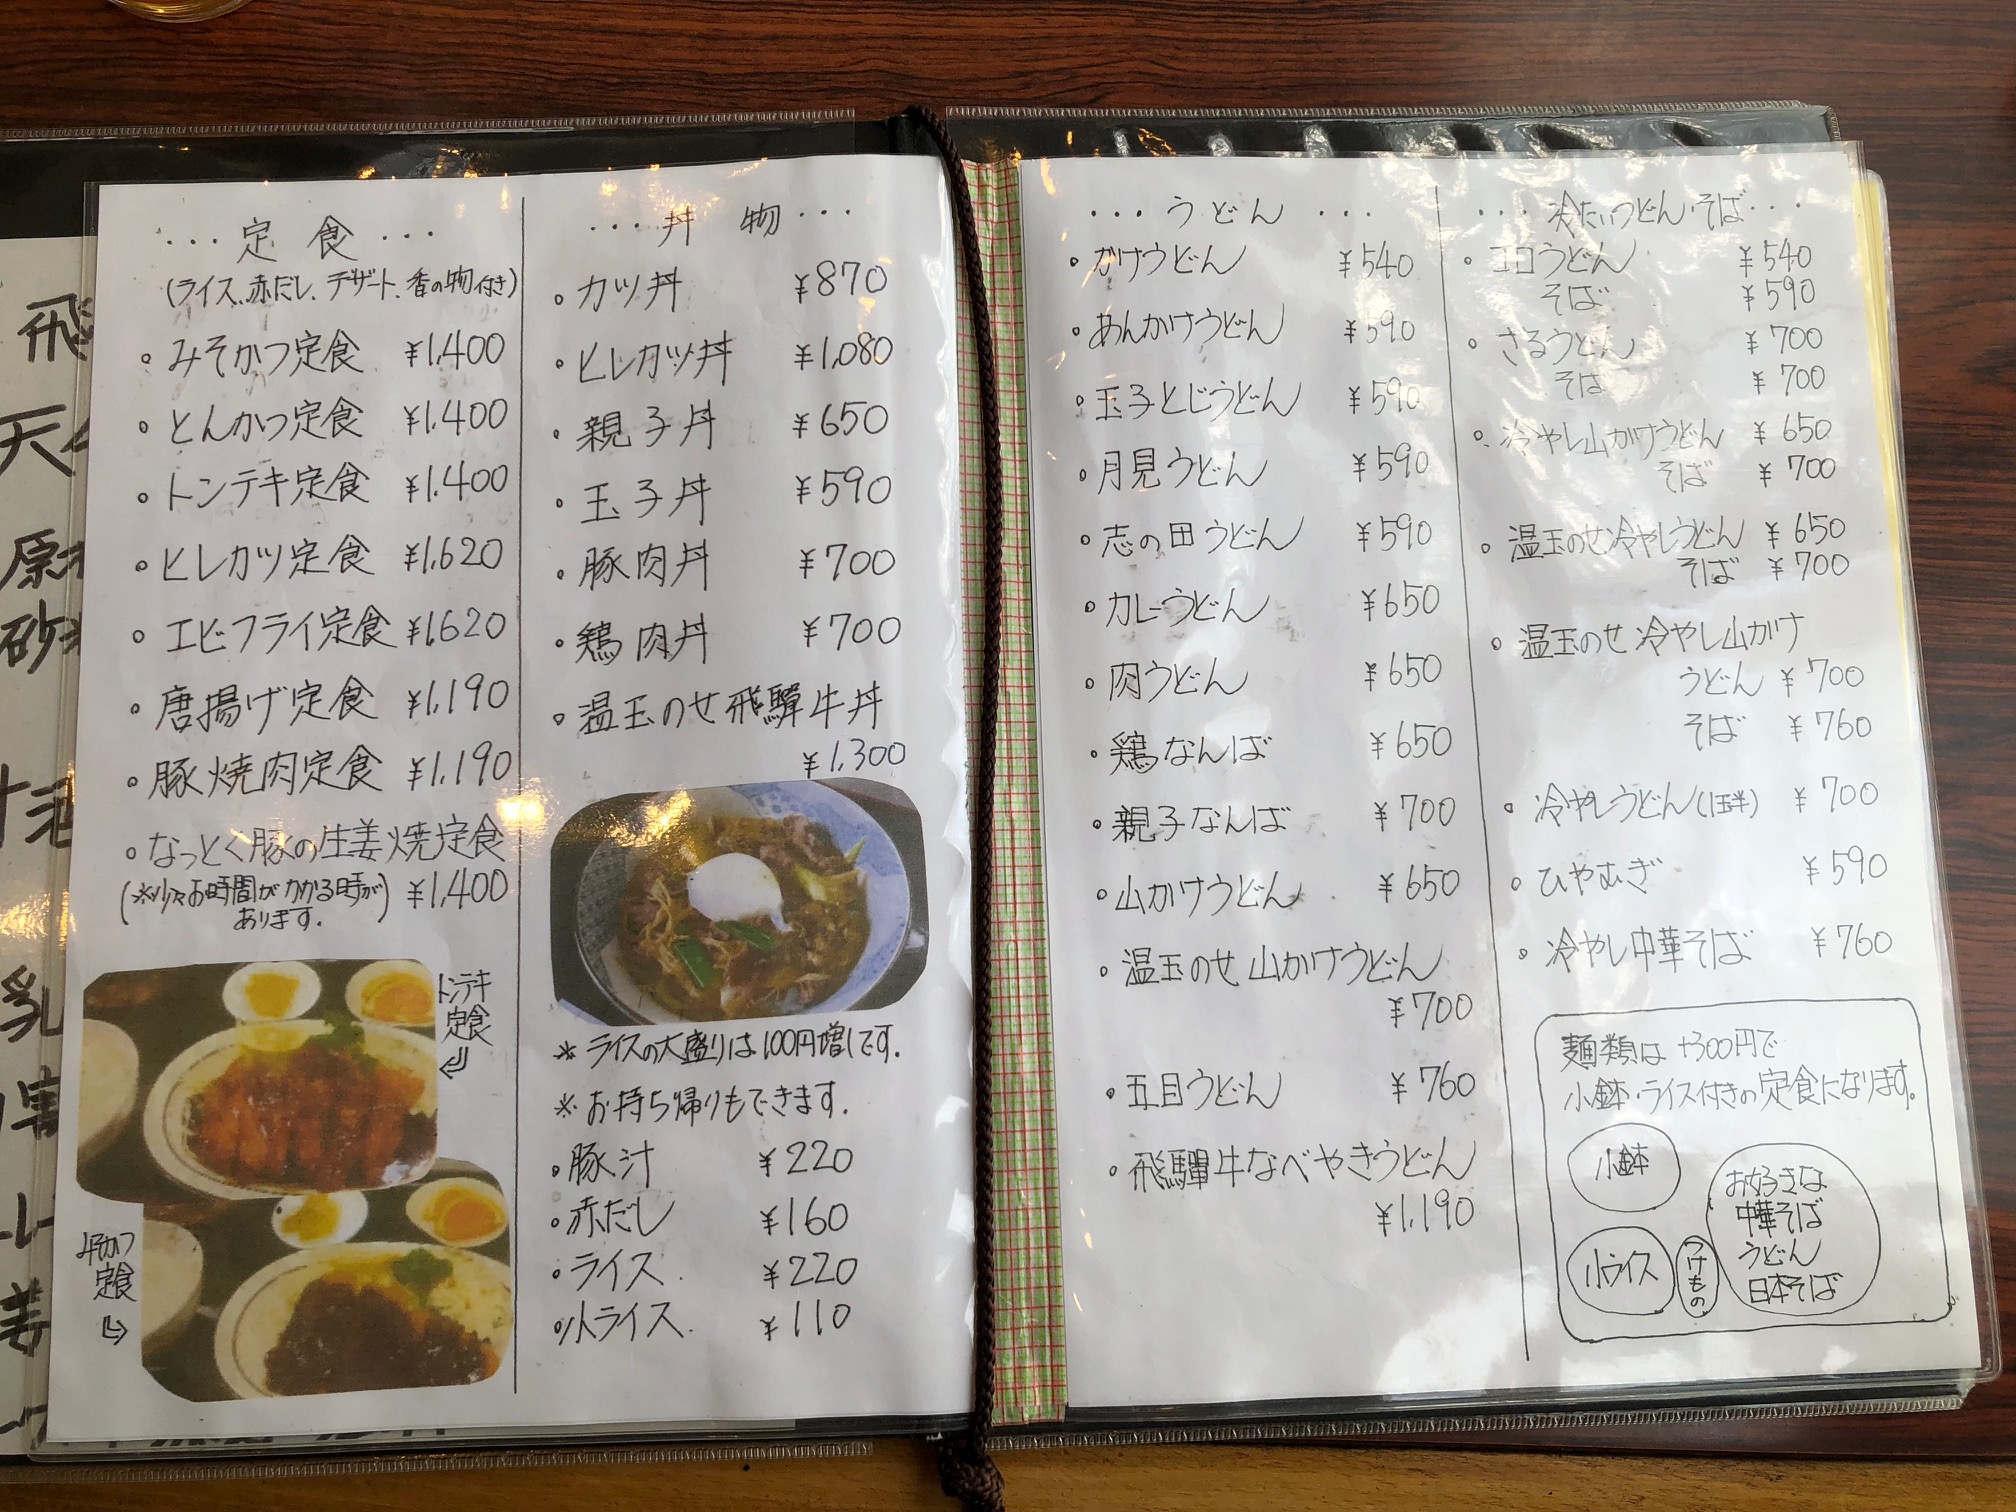 ・・・定食・・・
(ライス、赤だし、デザート、香の物付き)
・みそかつ定食 ¥1,400
・とんかつ定食 ¥1,400
・トンテキ定食 ¥1,400
・ヒレカツ定食 ¥1,620
・エビフライ定食 ¥1,620
・唐揚げ定食 ¥1,190
・豚焼肉定食 ¥1,190
・なっとく豚の生姜焼定食
(※少々お時間がかかる時が
あります.) ¥1,400
トンテキ
定食
みそかつ
定食
・・・丼物・・・
・カツ丼 ¥870
・ヒレカツ丼 ¥1,080
・親子丼 ¥650
・玉子丼 ¥590
・豚肉丼 ¥700
・鶏肉丼 ¥700
・温玉のせ飛騨牛丼
¥1,300
※ライスの大盛りは100円増しです.
※お持ち帰りもできます.
・豚汁 ¥220
・赤だし ¥160
・ライス. ¥220
・小ライス. ¥110
・・・うどん・・・
・かけうどん ¥540
・あんかけうどん ¥590
・玉子とじうどん ¥590
・月見うどん ¥590
・志の田うどん ¥590
・カレーうどん ¥650
・肉うどん ¥650
・鶏なんば ¥650
・親子なんば ¥700
・山かけうどん ¥650
・温玉のせ山かけうどん
¥700
・五目うどん ¥760
・飛騨牛なべやきうどん
¥1,190
・・・冷たいうどん・そば・・・
・コロうどん ¥540
そば ¥590
・ざるうどん ¥700
そば ¥700
・冷やし山かけうどん ¥650
そば ¥700
・温玉のせ冷やしうどん ¥650
そば ¥700
・温玉のせ冷やし山かけ
うどん ¥700
そば ¥760
・冷やしうどん(1玉半) ¥700
・ひやむぎ ¥590
・冷やし中華そば ¥760
麺類は+300円で
小鉢・ライス付きの定食になります.
小鉢
小ライス
つけもの
お好きな
中華そば
うどん
日本そば